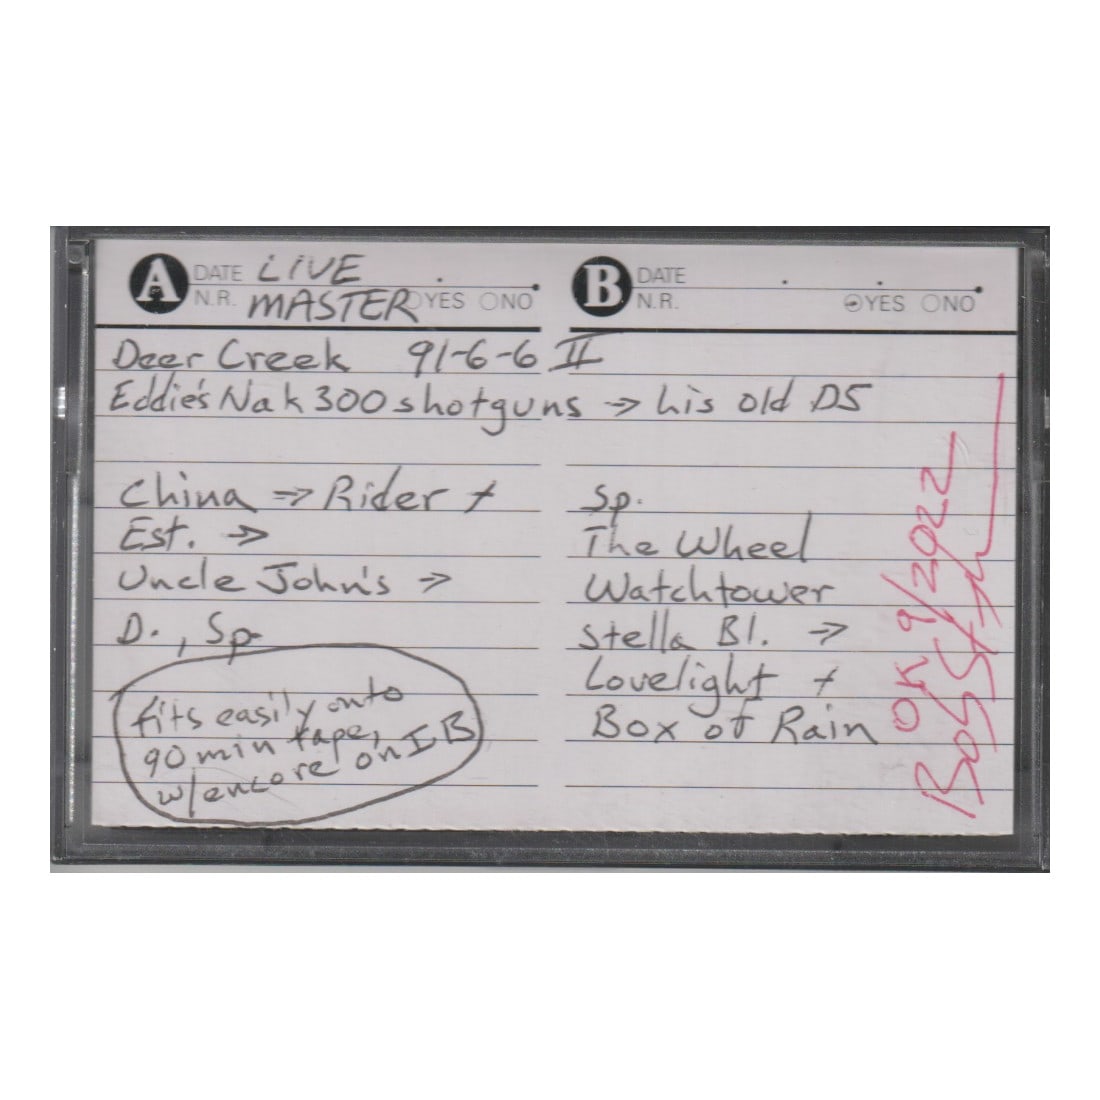 A DATE LIVE
N.R. MASTER YES NO
B DATE
N.R. YES NO
Deer Creek 91-6-6 II
Eddie's Nak 300 shotguns → his old D5
China → Rider +
Est. →
Uncle John's →
D., Sp.
fits easily onto
90 min tape,
w/encore on I B
Sp.
The Wheel
Watchtower
Stella Bl. →
Lovelight +
Box of Rain
OK 9/2022